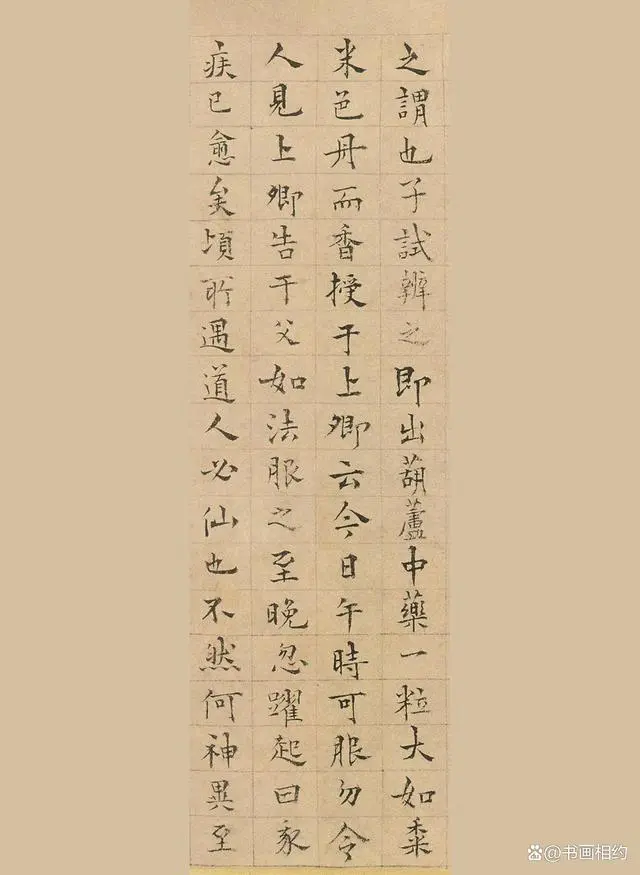 之謂也子試辨之即出葫蘆中藥一粒大如黍
米色丹而香授于上卿云今日午時可服勿令
人見上卿告于父如法服之至晚忽躍起曰我
疾已愈矣頃所遇道人必仙也不然何神異至
@书画相约